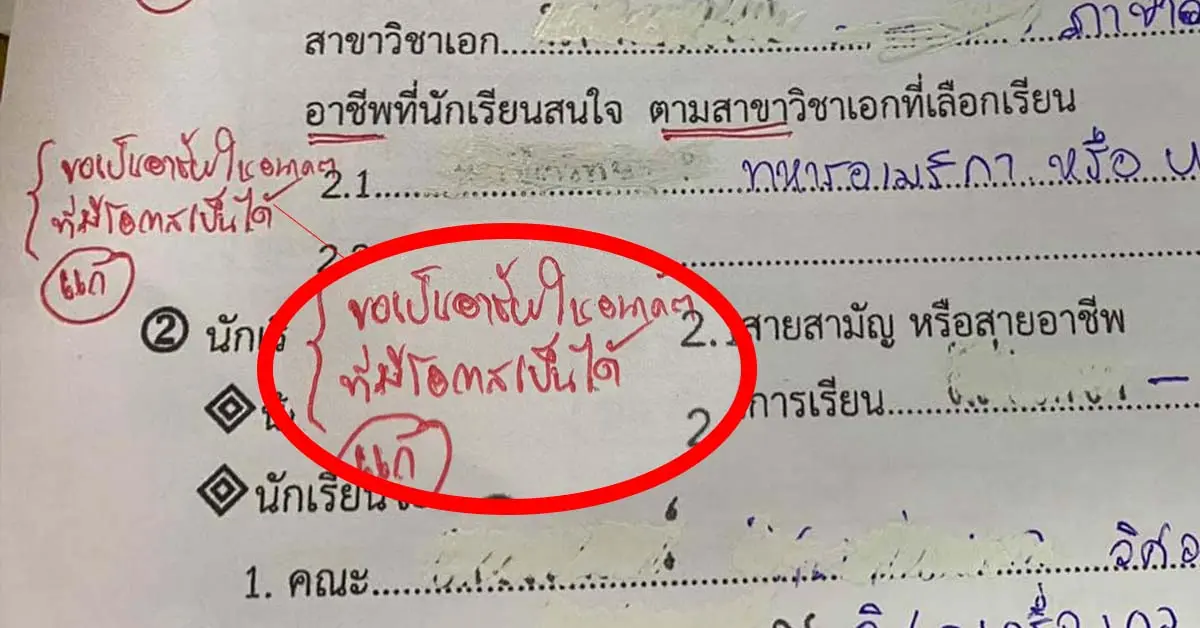 สาขาวิชาเอก
อาชีพที่นักเรียนสนใจ ตามสาขาวิชาเอกที่เลือกเรียน
ขอเป็นอาชีพในอนาคตๆ
ที่มีโอกาสเป็นได้
แก้
2.1 ทหารอเมริกา หรือ
ขอเป็นอาชีพในอนาคตๆ
ที่มีโอกาสเป็นได้
แก้
2 2. สายสามัญ หรือสายอาชีพ
2 การเรียน
นักเรียน
1. คณะ